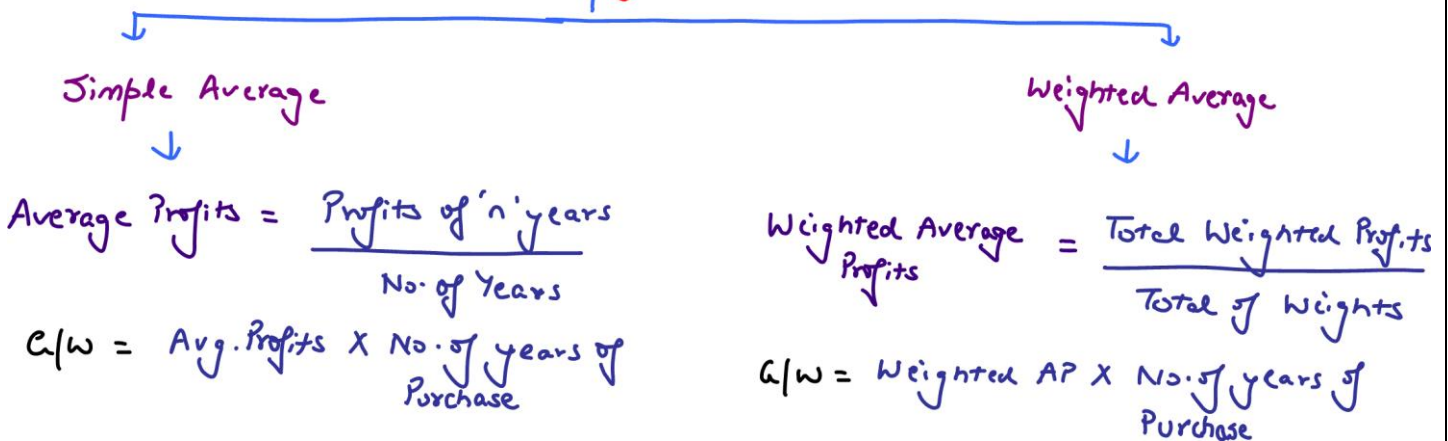 Simple Average
Weighted Average
Average Profits = Profits of 'n' years
No. of Years
G/W = Avg. Profits X No. of years of
Purchase
Weighted Average
Profits
= Total Weighted Profits
Total of Weights
G/W = Weighted AP X No. of years of
Purchase